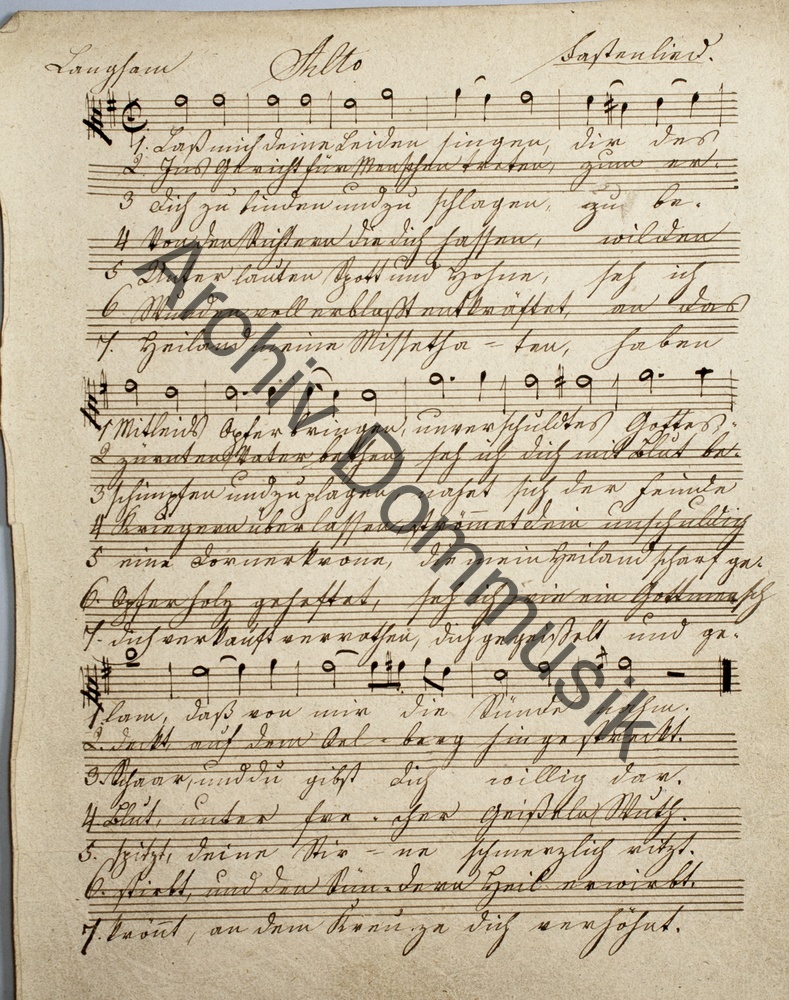 Langsam Alto Fastenlied.
1. Laß mich deine Leiden singen, dir des
2. Ins Gericht für Menschen treten, zum er-
3 Dich zu binden und zu schlagen, zu be-
4 Von den Richtern die dich hassen, wilden
5 Unter lauten Spott und Hohne, seh ich
6 Wunden voll erblaßt entkräftet, an das
7. Heiland meine Missetha-ten, haben
1 Mitleids Opfer bringen, unverschuldtes Gottes-
2 zürnten Vater bethen, seh ich dich mit Blut be-
3 schimpfen und zu plagen nahet sich der Feinde
4 Kriegern überlassen strömmet dein unschuldig
5 eine Dornerkrone, die mein Heiland scharf ge-
6. Opferholz geheftet, seh ich wie ein Gottmensch
7. dich verkauft verrathen, dich gegeißelt und ge-
1. lam, daß von mir die Sünde nahm.
2. deckt, auf dem Oel-berg hingestreckt.
3. Schaar, und du gibst dich willig dar.
4 Blut, unter fre-cher Geißeln Wuth.
5. spitzt, deine Stir-ne schmerzlich ritzt.
6. stirbt, und den Sün-dern Heil erwirbt.
7. krönt, an dem Kreu-ze dich verhöhnt.
Archiv Dommusik